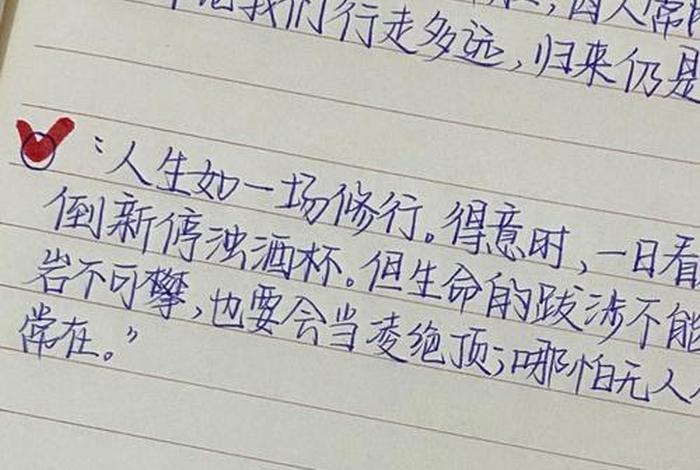 我们行走多远，归来仍是
“人生如一场修行。得意时，一日看
倒新停浊酒杯。但生命的跋涉不能
岩不可攀，也要会当凌绝顶；哪怕无人
常在。”